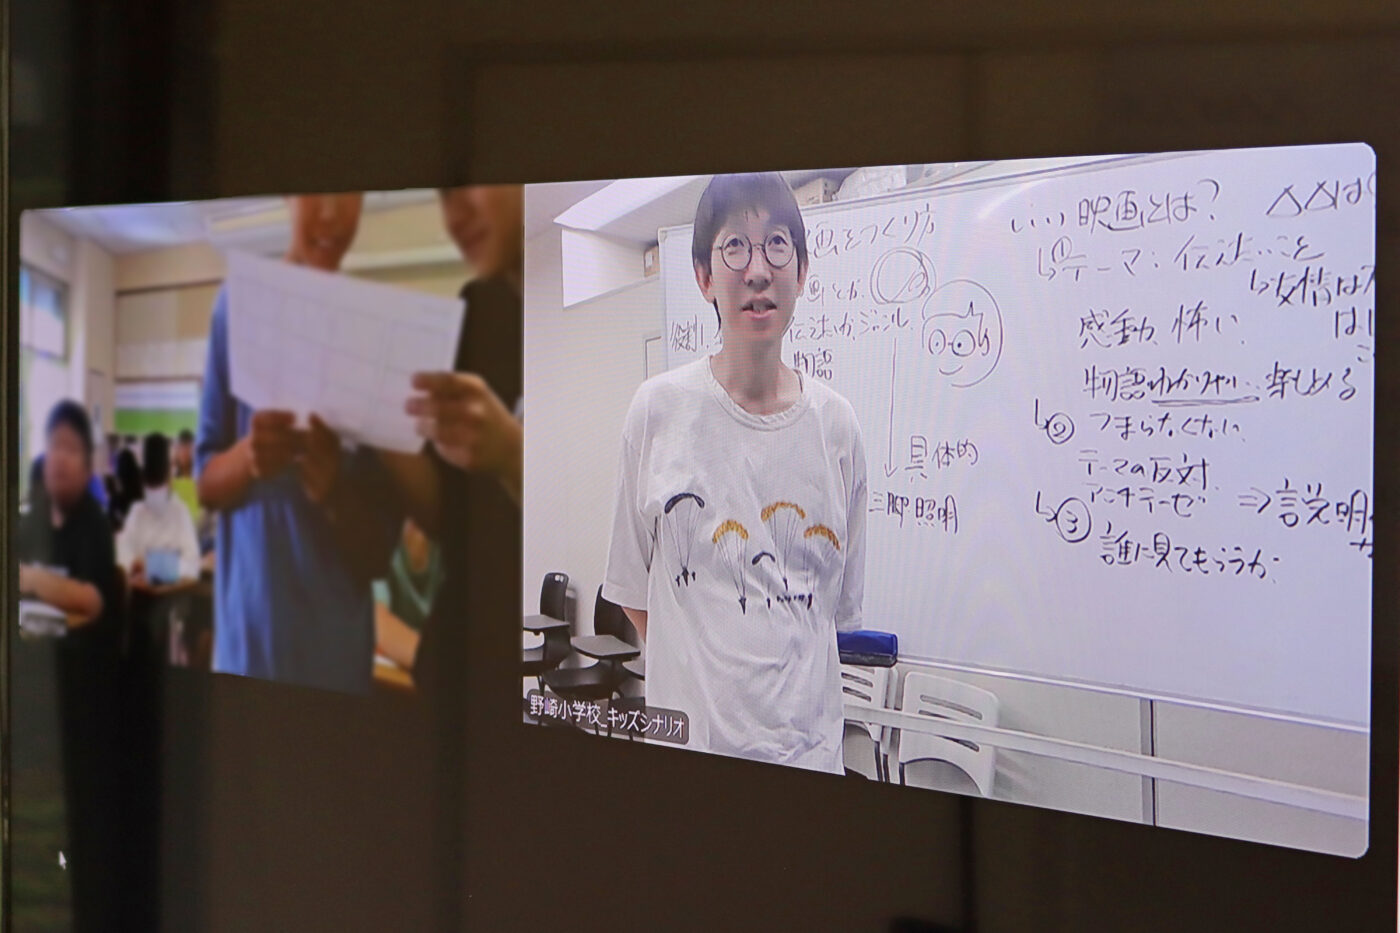 画をつくり方
画とか
伝えたいか
物語
具体的
三脚 照明
いい映画とは?
△△は
①テーマ:伝えたいこと
友情は
は
感動 怖い
物語わかりやすい 楽しめる
② つまらなくない
テーマの反対
アンチテーゼ ⇒ 説明
③ 誰に見てもらうか
野崎小学校_キッズシナリオ